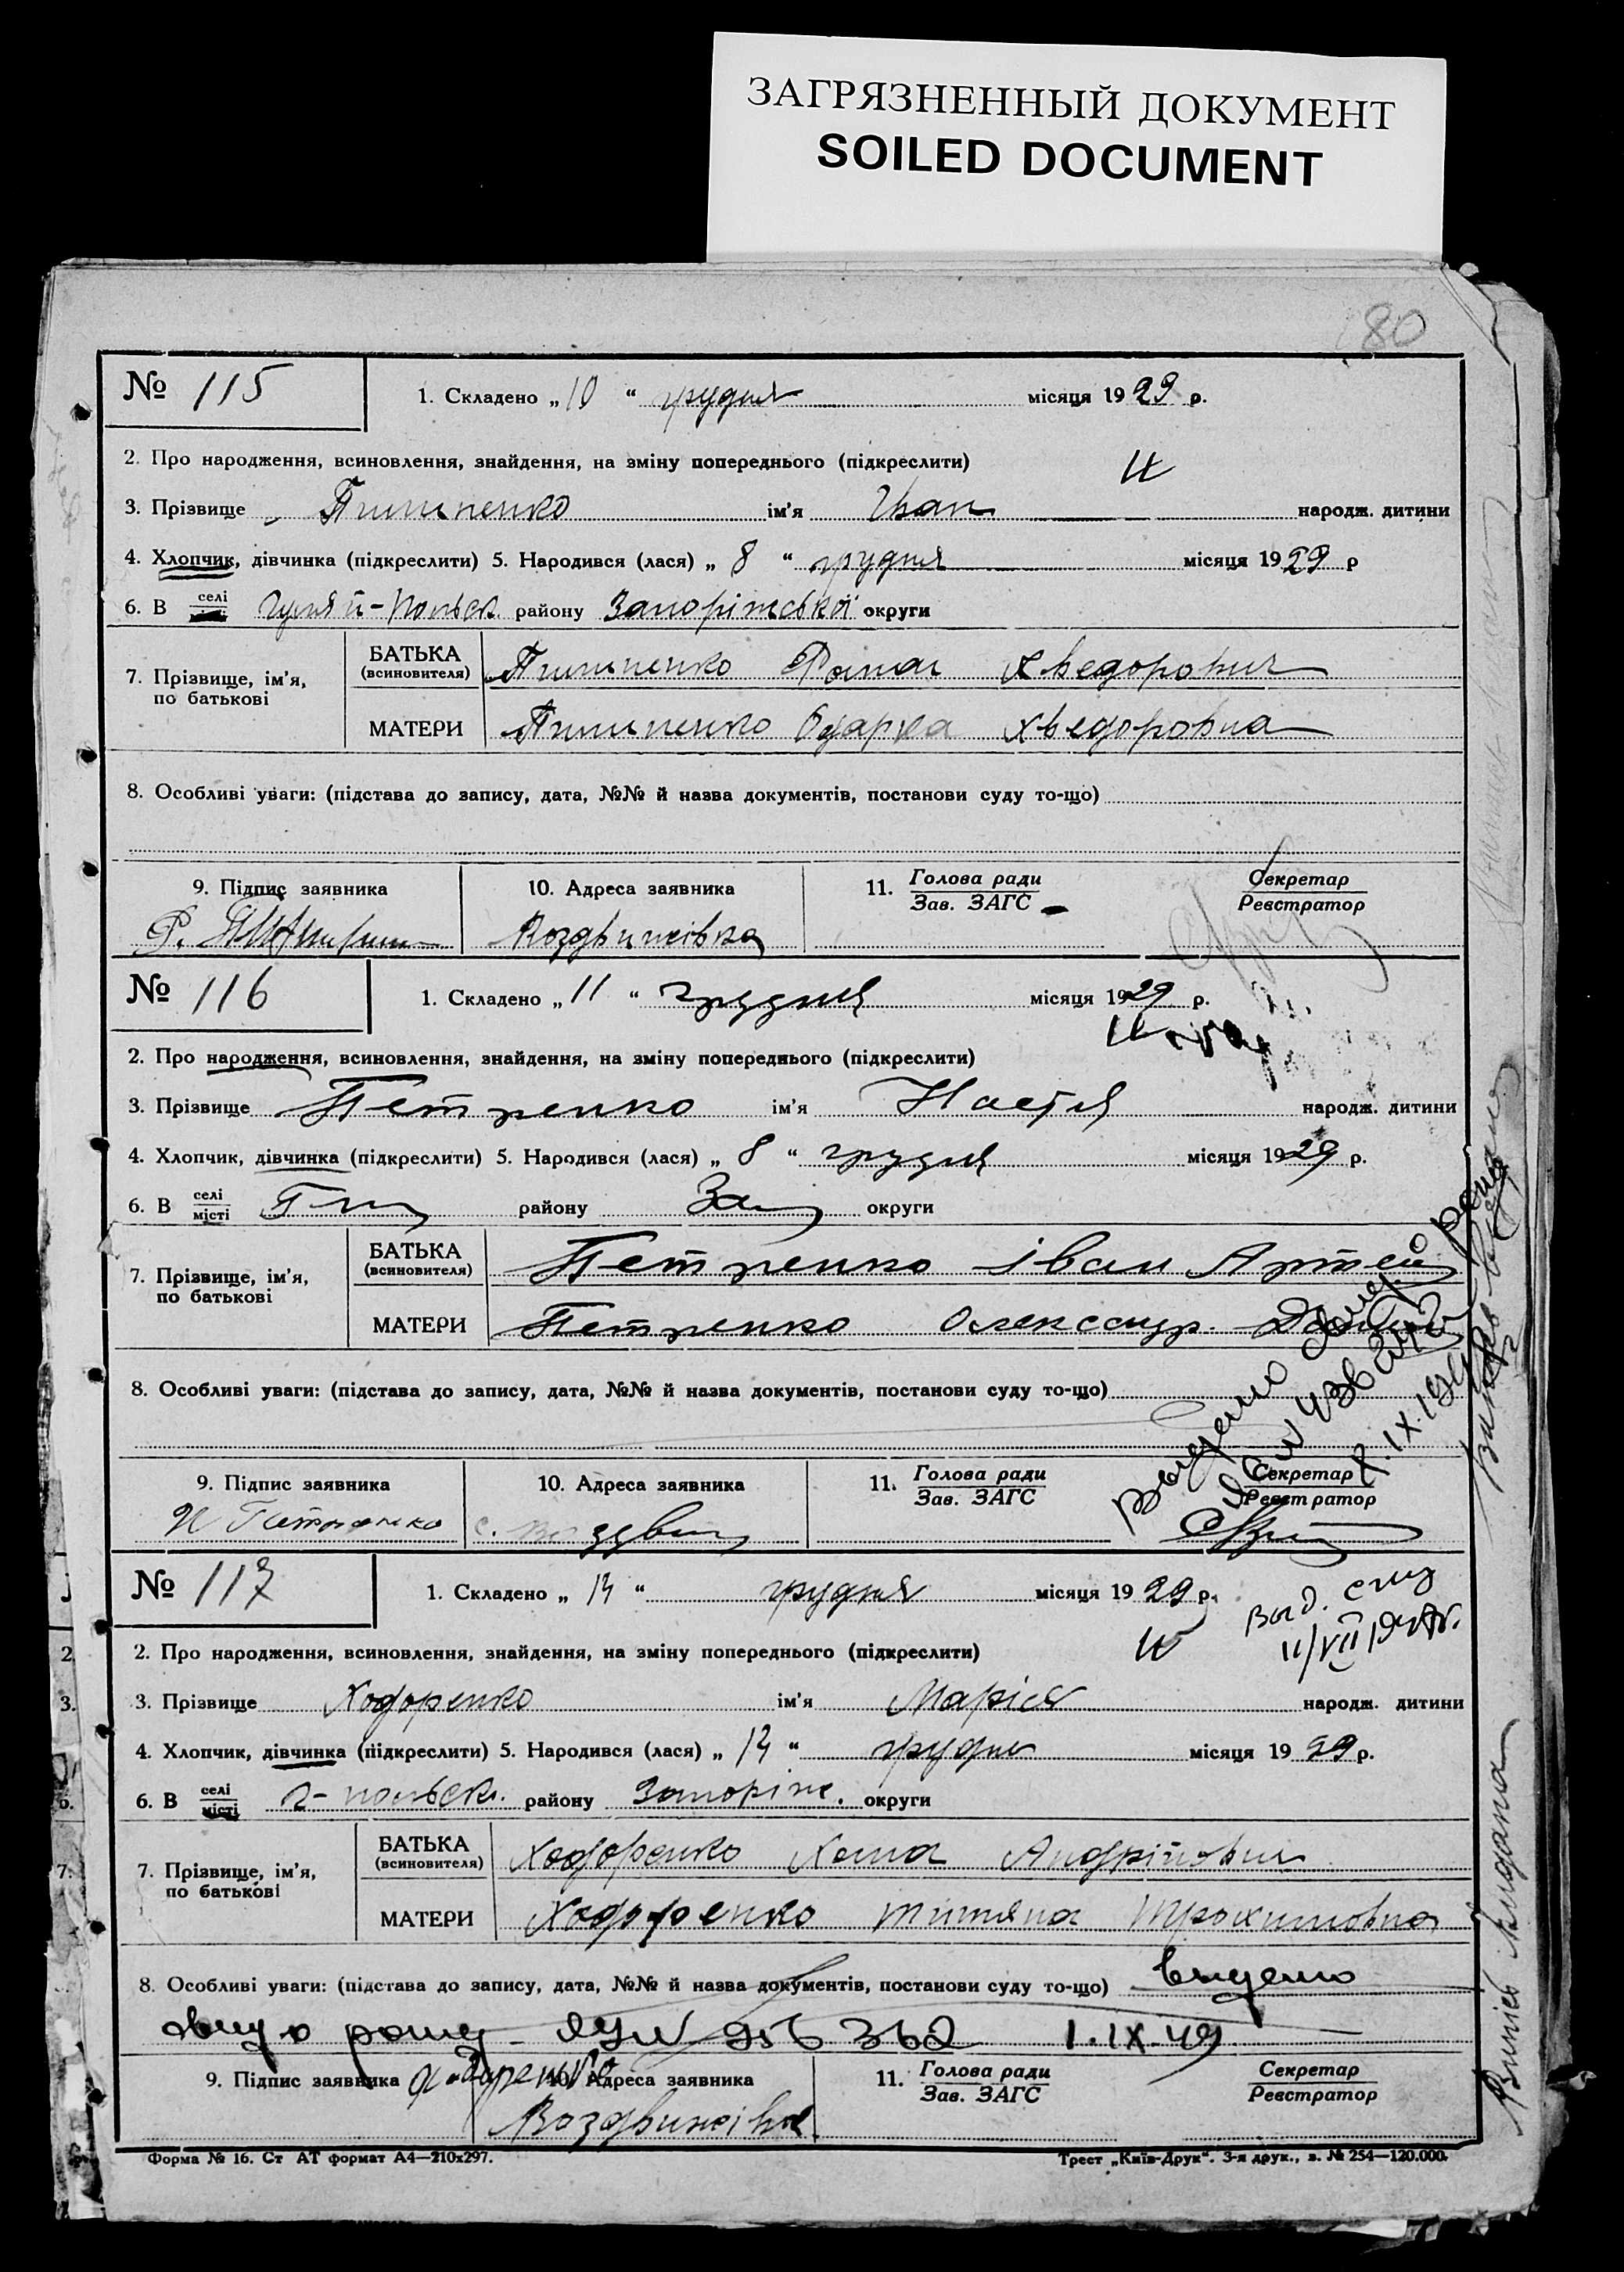 ЗАГРЯЗНЕННЫЙ ДОКУМЕНТ
SOILED DOCUMENT
80
№ 115
1. Складено „ 10 “ грудня місяця 1929 р.
2. Про народження, всиновлення, знайдення, на зміну попереднього (підкреслити)
3. Прізвище Пилипенко ім'я Іван народж. дитини
4. Хлопчик, дівчинка (підкреслити) 5. Народився (лася) „ 8 “ грудня місяця 1929 р
6. В селі Гуляй-Польск. району Запоріжської округи
7. Прізвище, ім'я, по батькові
БАТЬКА (всиновителя) Пилипенко Роман Хведорович
МАТЕРИ Пилипенко Одарка Хведоровна
8. Особливі уваги: (підстава до запису, дата, №№ й назва документів, постанови суду то-що)
9. Підпис заявника
10. Адреса заявника
11. Голова ради Зав. ЗАГС
Секретар Реєстратор
Р.
Воздвижівка
№ 116
1. Складено „ 11 “ грудня місяця 1929 р.
2. Про народження, всиновлення, знайдення, на зміну попереднього (підкреслити)
3. Прізвище Петренко ім'я Настя народж. дитини
4. Хлопчик, дівчинка (підкреслити) 5. Народився (лася) „ 8 “ грудня місяця 1929 р.
6. В селі місті району Зап округи
7. Прізвище, ім'я, по батькові
БАТЬКА (всиновителя) Петренко Іван Артем
МАТЕРИ Петренко Олександр.
8. Особливі уваги: (підстава до запису, дата, №№ й назва документів, постанови суду то-що)
Выдано
9. Підпис заявника
10. Адреса заявника
11. Голова ради Зав. ЗАГС
Секретар Реєстратор
с. Воздвиж
№ 117
1. Складено „ 14 “ грудня місяця 1929 р.
2. Про народження, всиновлення, знайдення, на зміну попереднього (підкреслити)
3. Прізвище Ходоренко ім'я Марія народж. дитини
4. Хлопчик, дівчинка (підкреслити) 5. Народився (лася) „ 14 “ грудня місяця 1929 р.
6. В селі місті Г-польск. району Запоріж. округи
7. Прізвище, ім'я, по батькові
БАТЬКА (всиновителя) Ходоренко Хома Андрійович
МАТЕРИ Ходоренко Титяна Трохимовна
8. Особливі уваги: (підстава до запису, дата, №№ й назва документів, постанови суду то-що) выдано
1.IX.49
9. Підпис заявника
10. Адреса заявника
11. Голова ради Зав. ЗАГС
Секретар Реєстратор
Воздвижівка
Форма № 16. Ст АТ формат А4—210х297.
Трест „Київ-Друк“. 3-я друк., з. № 254—120.000.